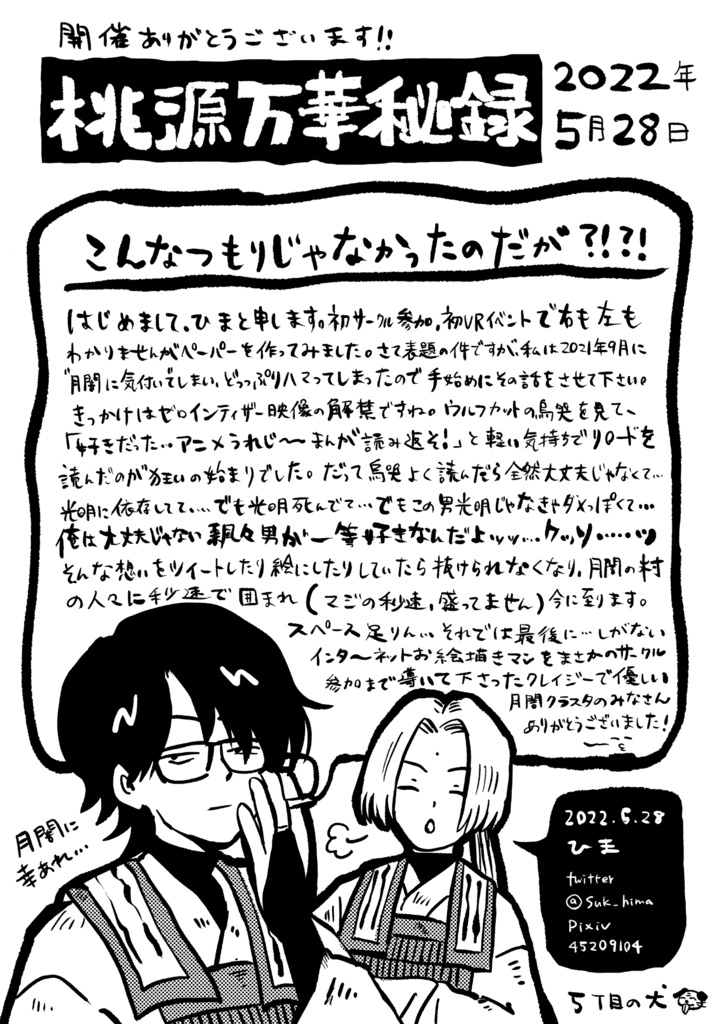 開催ありがとうございます!!
桃源万華秘録
2022年
5月28日
こんなつもりじゃなかったのだが?!?!
はじめまして、ひまと申します。初サークル参加,初VRイベントで右も左も
わかりませんがペーパーを作ってみました。さて表題の件ですが、私は2021年9月に
月闇に気付いてしまい、どっぷりハマってしまったので手始めにその話をさせて下さい。
きっかけはゼロインティザー映像の解禁ですね。ウルフカットの烏哭を見て、
「好きだった…アニメうれじ〜まんが読み返そ!」と軽い気持ちでリロードを
読んだのが狂いの始まりでした。だって烏哭よく読んだら全然大丈夫じゃなくて…
光明に依存してて…でも光明死んでて…でもこの男光明じゃなきゃダメっぽくて…
俺は大丈夫じゃない飄々男が一等好きなんだよッッッ…クッソ……ッ
そんな想いをツイートしたり絵にしたりしていたら抜けられなくなり,月闇の村
の人々に秒速で囲まれ(マジの秒速,盛ってません)今に至ります。
スペース足りん…それでは最後に…しがない
インターネットお絵描きマンをまさかのサークル
参加まで導いて下さったクレイジーで優しい
月闇クラスタのみなさん
ありがとうございました!
月闇に
幸あれ…
2022.5.28
ひま
twitter
@suk_hima
Pixiv
45209104
5丁目の犬